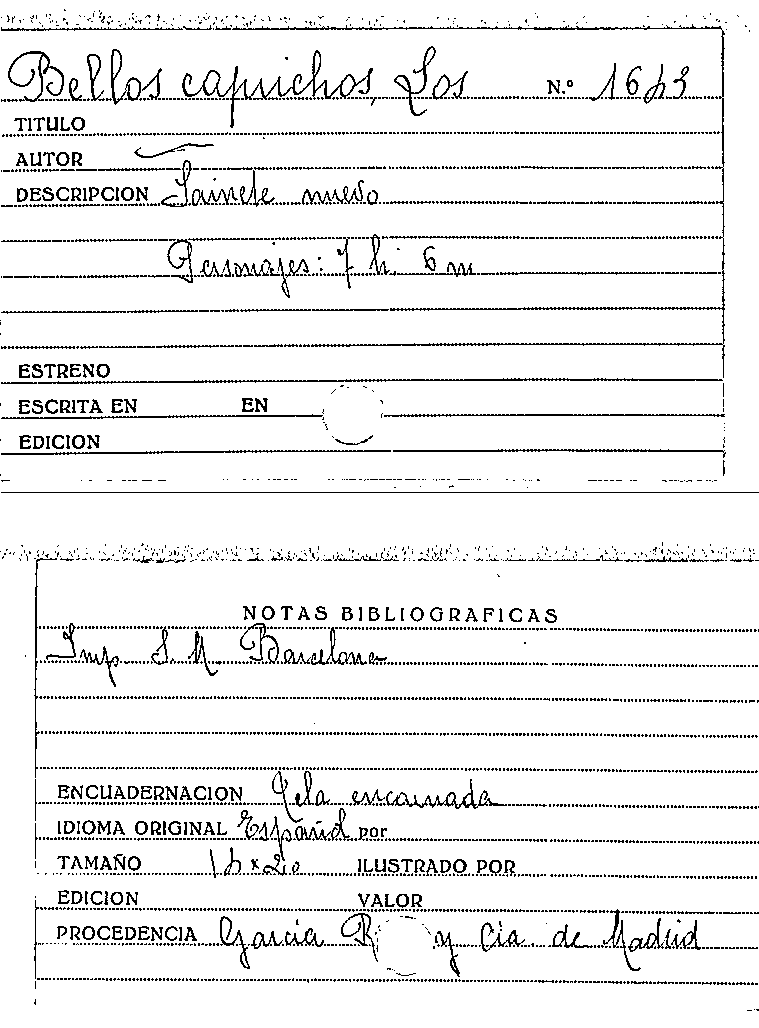 Bellos caprichos, Los N.º 1643
TITULO
AUTOR
DESCRIPCION Sainete nuevo
Personajes: 7 h. 6 m
ESTRENO
ESCRITA EN EN
EDICION
NOTAS BIBLIOGRAFICAS
Imp. S. N. Barcelona
ENCUADERNACION Tela encarnada
IDIOMA ORIGINAL Español por
TAMAÑO 15 x 20 ILUSTRADO POR
EDICION VALOR
PROCEDENCIA García R y Cia. de Madrid